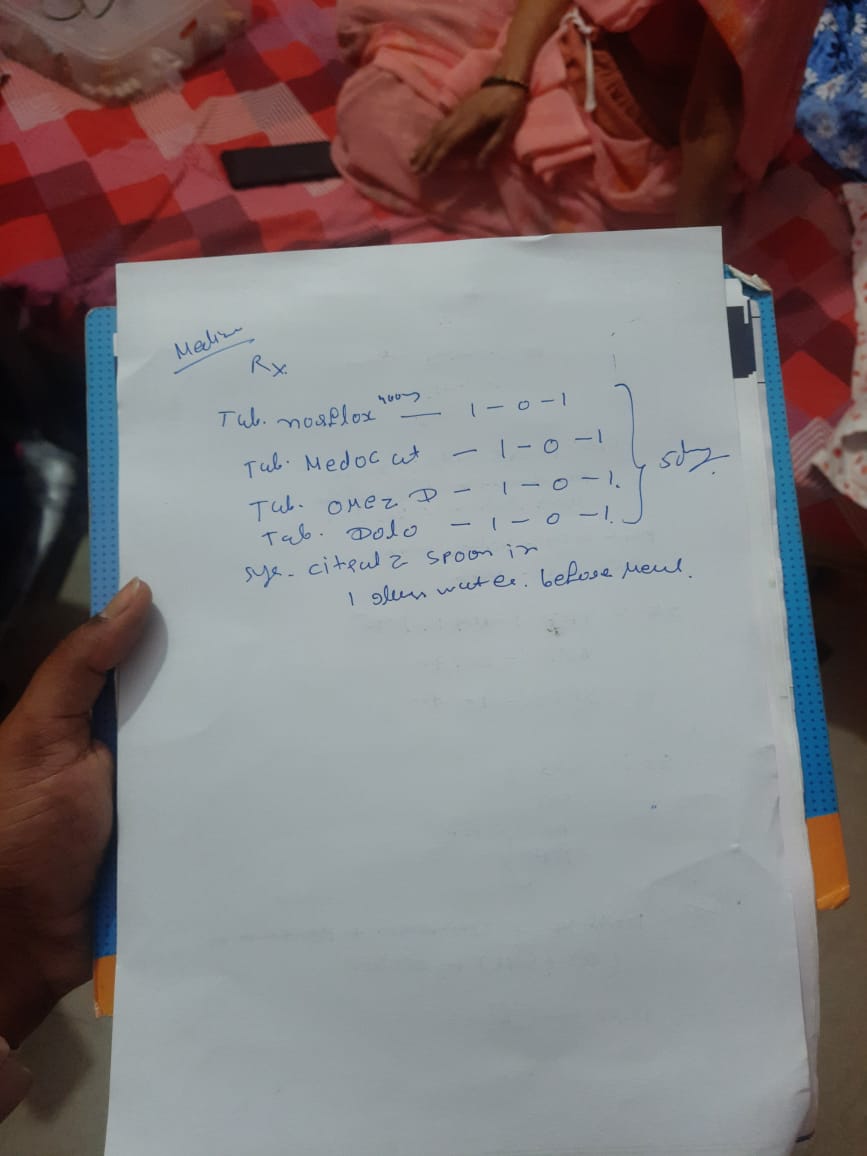 Medicine
Rx.
Tab. nosflox 400mg — 1 - 0 - 1
Tab. Medoc cut — 1 - 0 - 1
Tab. OMEZ D - 1 - 0 - 1.
Tab. Dolo - 1 - 0 - 1.
5 day
sye. citral 2 spoon in
1 glass water. before meal.